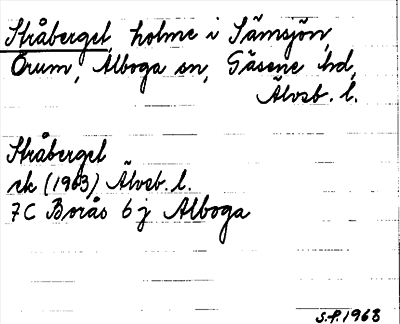 Stråberget, holme i Sämsjön,
Örum, Alboga sn, Gäsene hd,
Älvsb. l.
Stråberget
ek (1963) Älvsb. l.
7C Borås 6 j Alboga
S.F. 1968